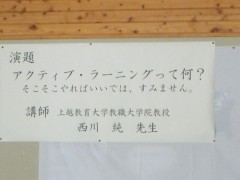 演題
アクティブ・ラーニングって何？
そこそこやればいいでは、すみません。
講師 上越教育大学教職大学院教授
西川 純 先生